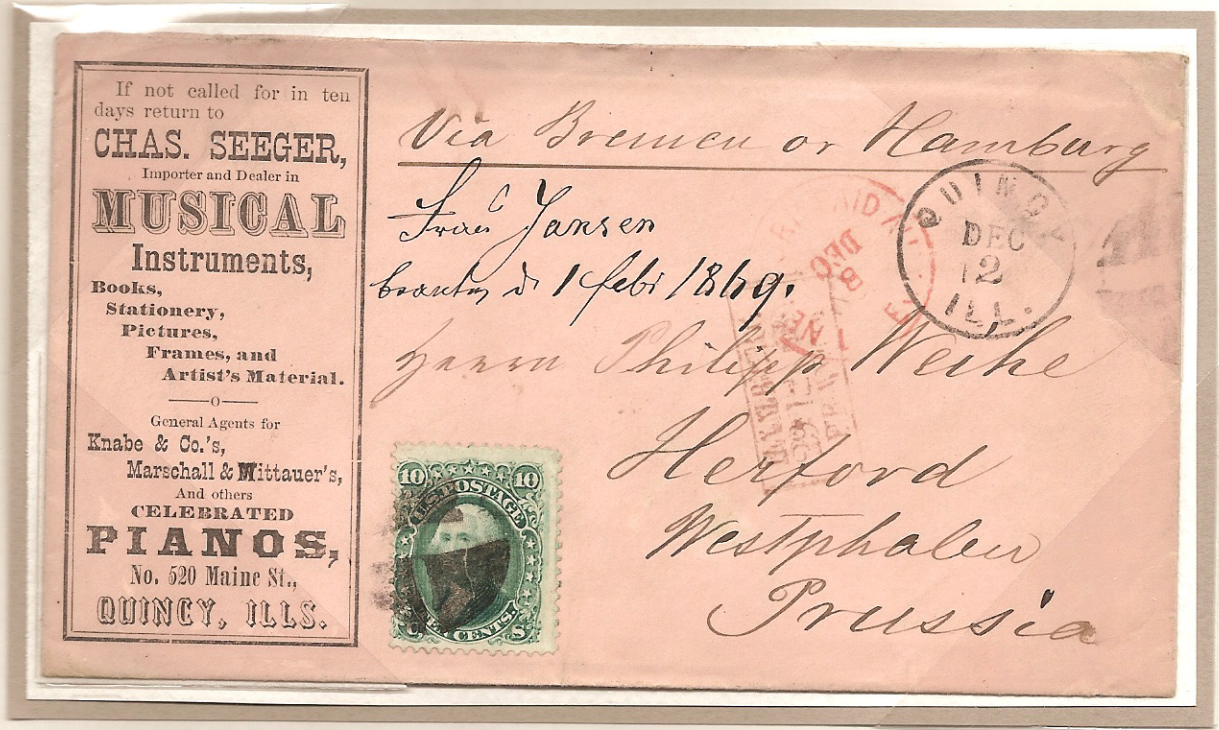 If not called for in ten
days return to
CHAS. SEEGER,
Importer and Dealer in
MUSICAL
Instruments,
Books,
Stationery,
Pictures,
Frames, and
Artist's Material.
—o—
General Agents for
Knabe & Co.'s,
Marschall & Mittauer's,
And others
CELEBRATED
PIANOS,
No. 520 Maine St.,
QUINCY, ILLS.
Via Bremen or Hamburg
Frau Jansen
1 febr 1869.
Herrn Philipp Weihe
Herford
Westphalen
Prussia
QUINCY
DEC
12
ILL.
PAID ALL
DEC
8
NE
10 10
U.S. POSTAGE
TEN CENTS.
U S